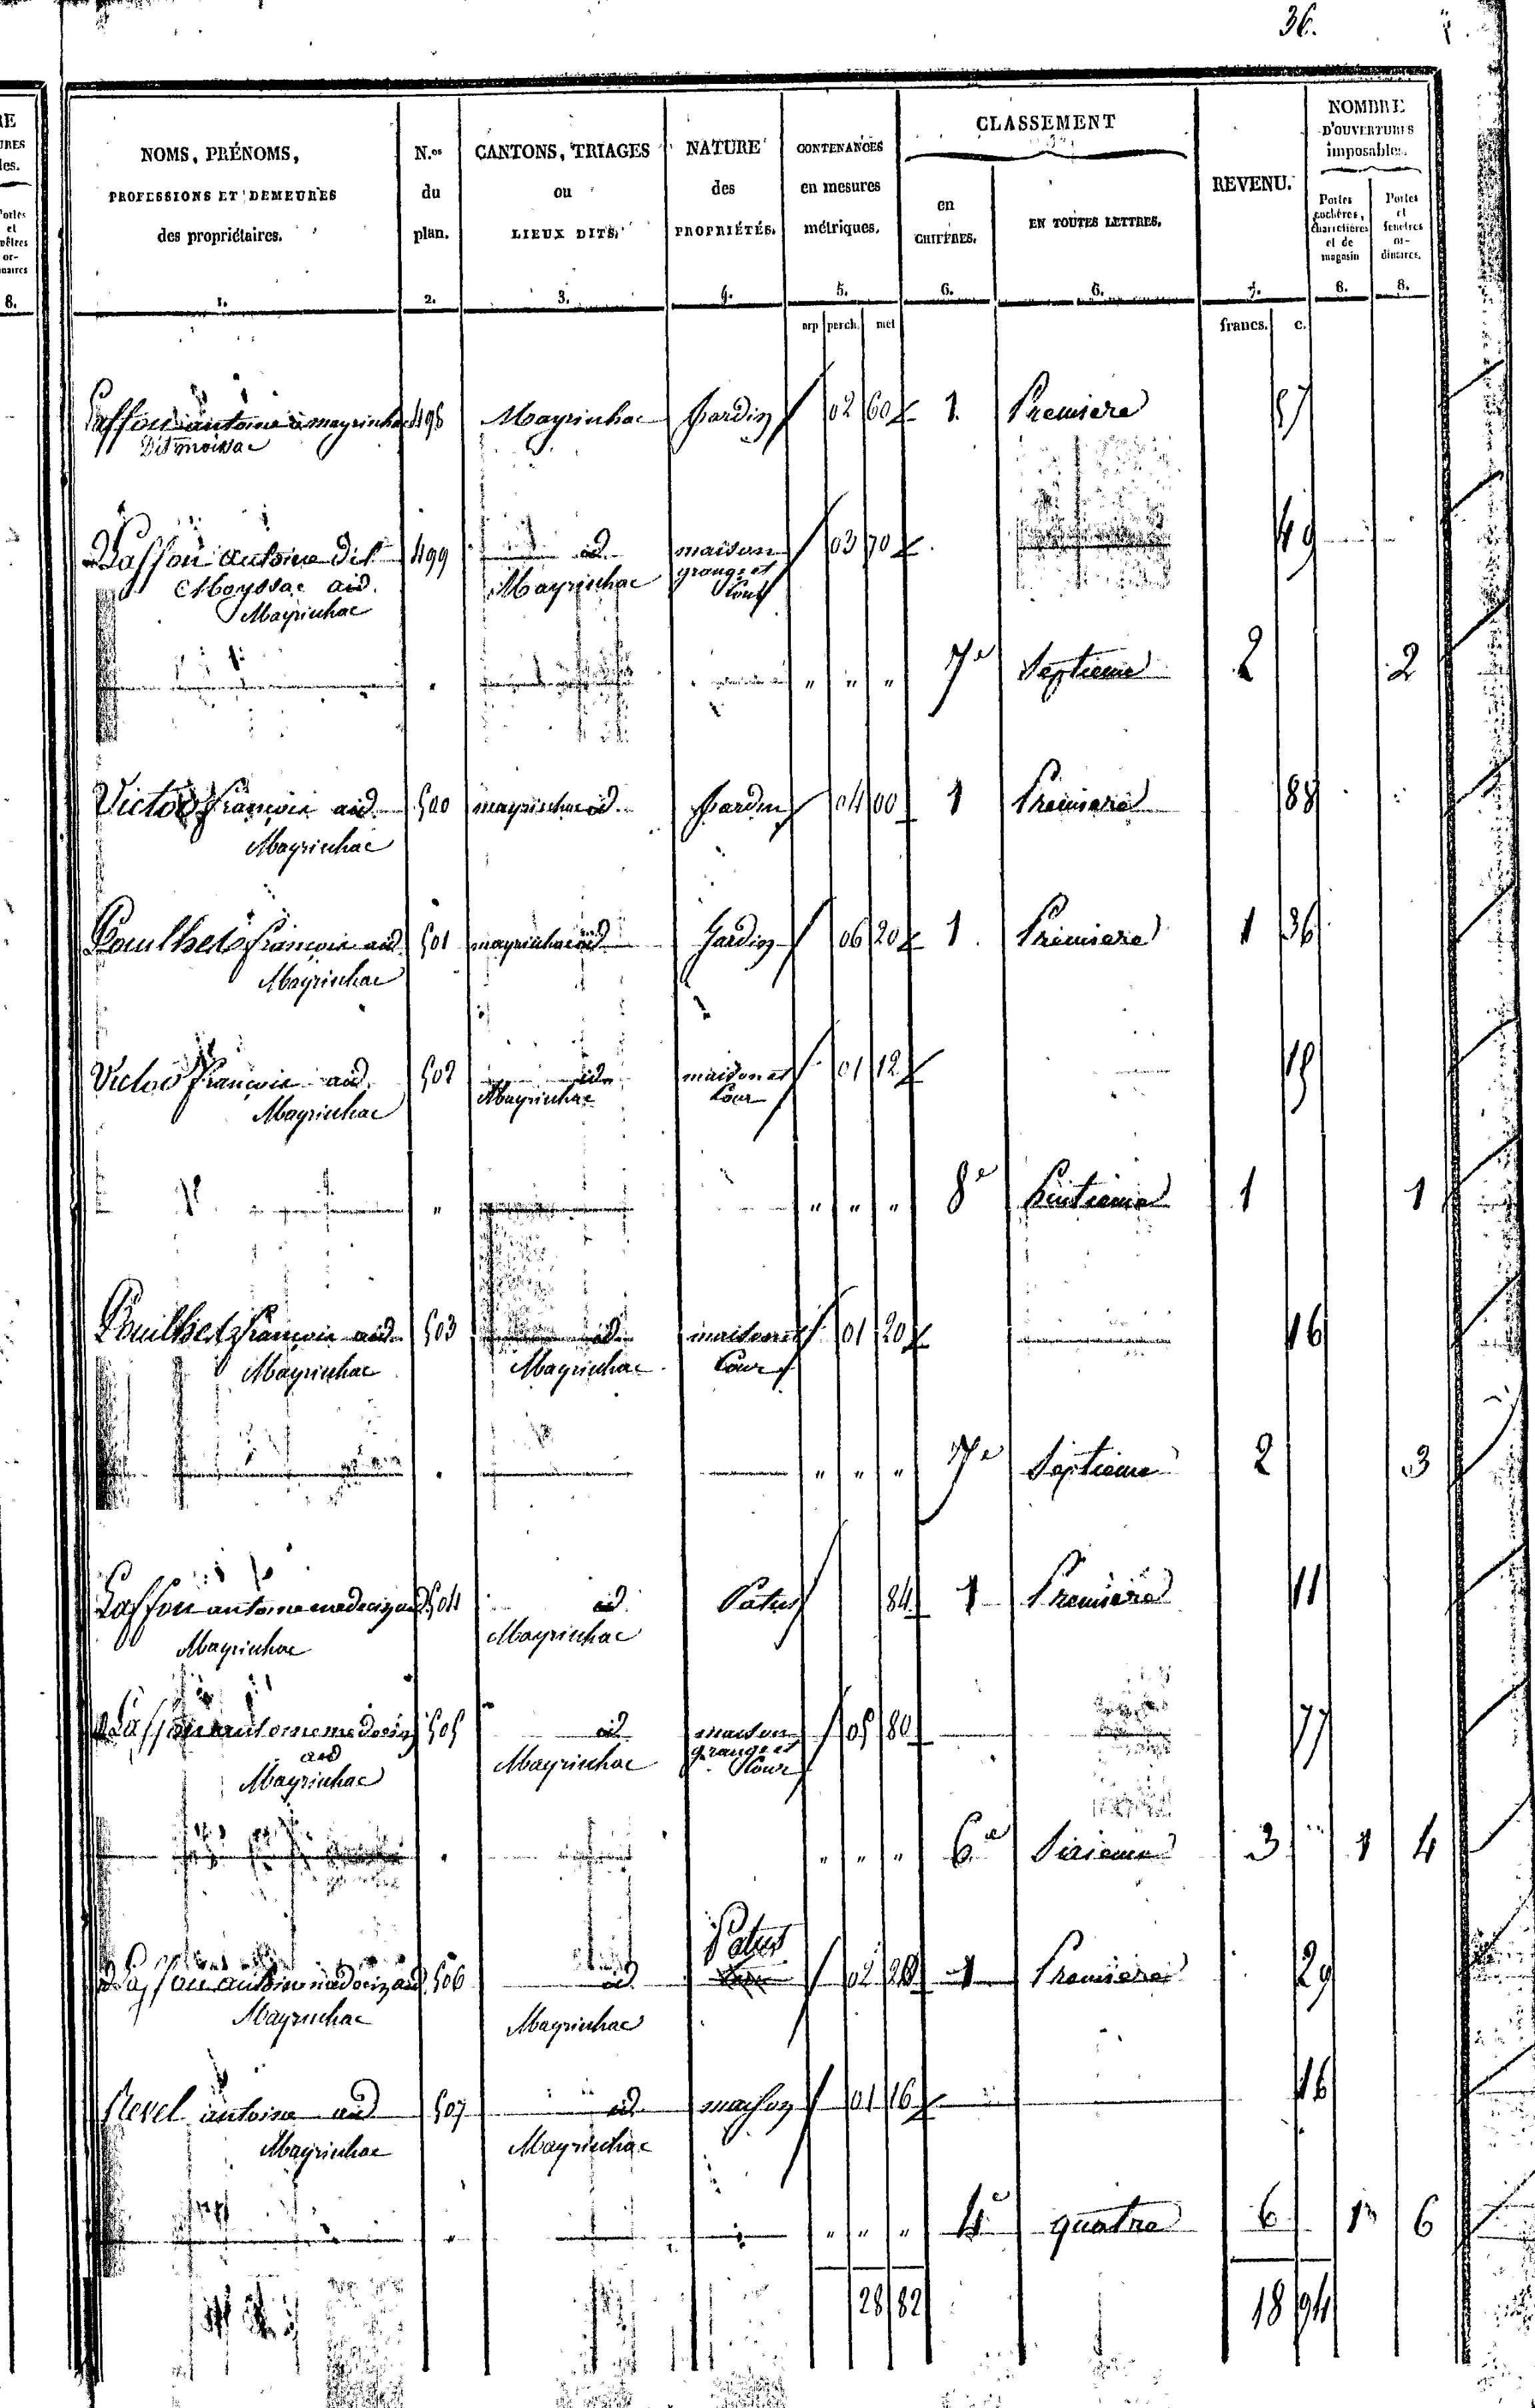 36.
NOMS, PRÉNOMS, PROFESSIONS ET DEMEURES des propriétaires. 1.
N.os du plan. 2.
CANTONS, TRIAGES ou LIEUX DITS. 3.
NATURE des PROPRIÉTÉS. 4.
CONTENANCES en mesures métriques. 5.
CLASSEMENT
en CHIFFRES. 6.
EN TOUTES LETTRES. 6.
REVENU. 7.
NOMBRE D'OUVERTURES imposables.
Portes cochères, charretières et de magasin 8.
Portes et fenetres or-dinaires. 8.
arp perch. met francs. c.
Laffon antoine a mayrinhac 498 Mayrinhac Jardin 02 60 1. Premiere 57
Dit moissac
Laffon antoine dit 499 id. maison 03 70 49
Moyssac aid. Mayrinhac grange et
Mayrinhac Cour
" " " 7e Septieme 2 2
Victor françois aid. 500 mayrinhac id. Jardin 04 00 1 Premiere 88
Mayrinhac
Pouilhes françois aid 501 mayrinhac id Jardin 06 20 1. Premiere 1 36
Mayrinhac
Victor françois aid. 502 id. maison et 01 12 15
Mayrinhac Mayrinhac Cour
" " " " 8e huitieme 1 1
françois aid. 503 id. maison et 01 20 16
Mayrinhac Mayrinhac Cour
" " " 7e Septieme 2 3
Laffon antoine medecin aid 504 id. Patus 84 1 Premiere 11
Mayrinhac Mayrinhac
Laffon antoine medecin 505 id maison 05 80 77
aid Mayrinhac grange et
Mayrinhac Cour
" " " 6e Sixieme 3 1 4
Patus
Laffon antoine medecin aid. 506 id 02 20 1 Premiere 29
Mayrinhac Mayrinhac
Revel antoine aid 507 id. maison 01 16 16
Mayrinhac Mayrinhac
" " " " 4e quatre 6 1 6
28 82 18 94